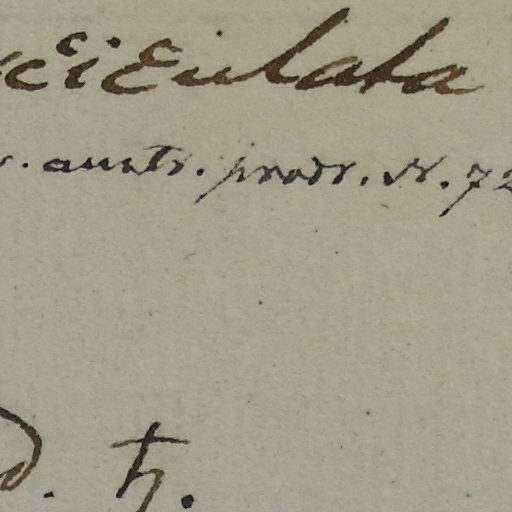 ciculata
. austr. prodr. N. 72
d. ♄.